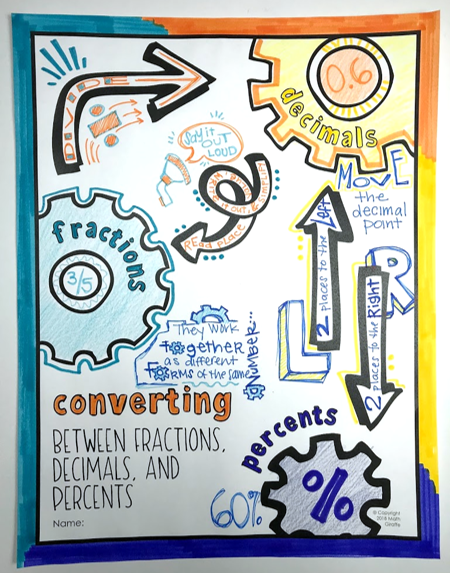 DIVIDE
0.6
decimals
Say it
OUT
LOUD
READ PLACE
WRITE IT OUT, & SIMPLIFY
MOVE
the
decimal
point
fractions
3/5
2 places to the Left
L
R
2 places to the Right
They work
together
as different
forms of the same
Number...
converting
BETWEEN FRACTIONS,
DECIMALS, AND
PERCENTS
Name:
percents
60%
%
© Copyright
2018 Math
Giraffe